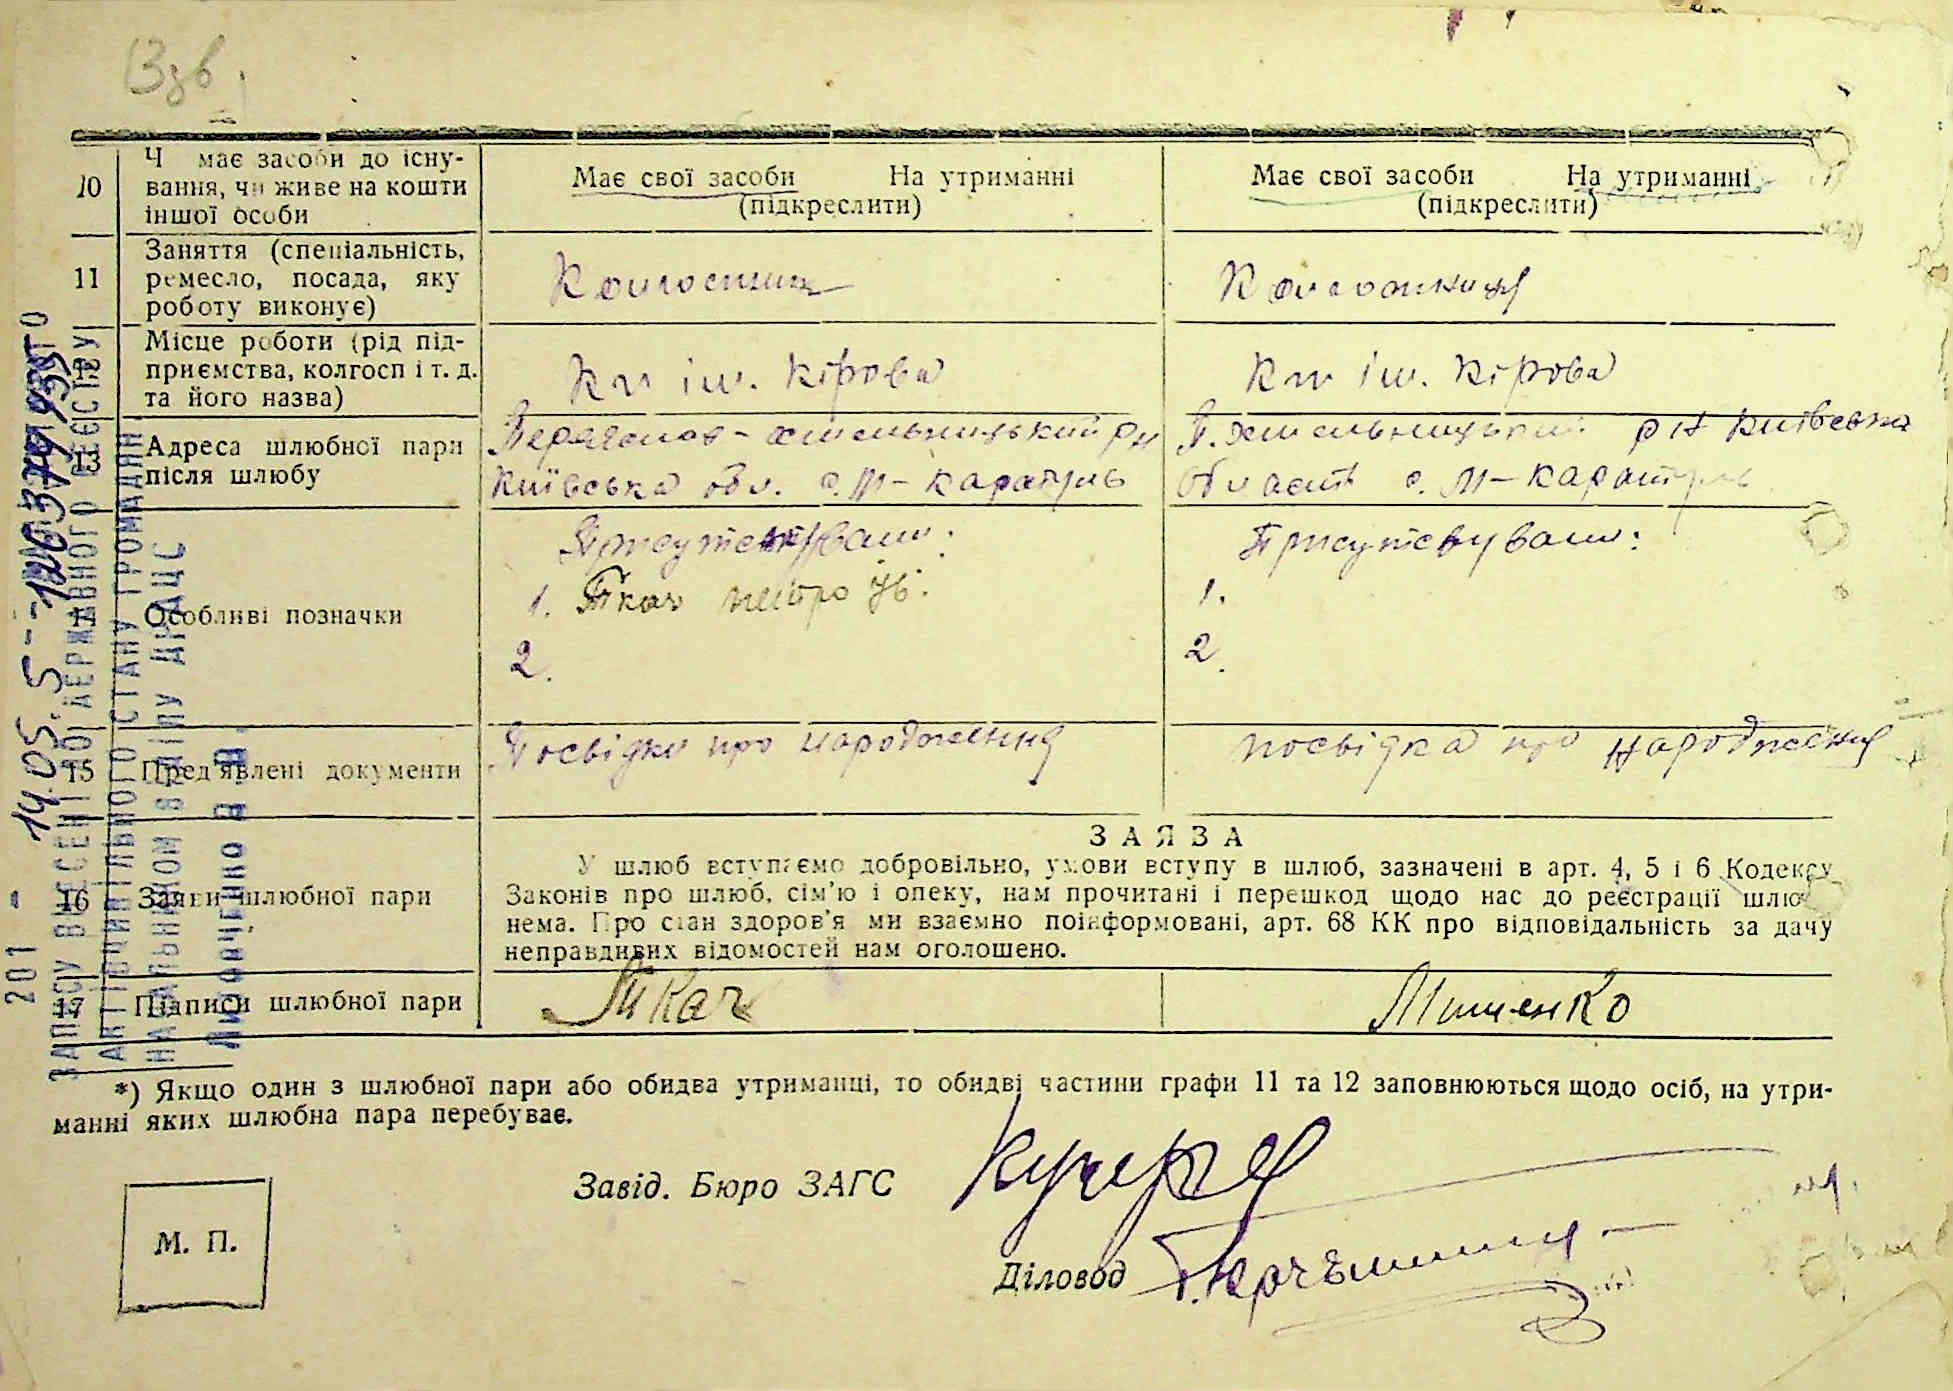 13зв.
10
Ч має засоби до існу-
вання, чи живе на кошти
іншої особи
Має свої засоби На утриманні
(підкреслити)
Має свої засоби На утриманні
(підкреслити)
11
Заняття (спеціальність,
ремесло, посада, яку
роботу виконує)
Колгоспник
Колгоспниця
12
Місце роботи (рід під-
приємства, колгосп і т. д.
та його назва)
К-п ім. Кірова
К-п ім. Кірова
13
Адреса шлюбної пари
після шлюбу
Переяслав-Хмельницький р-н
Київська обл. с. М-Каратуль
П. Хмельницький р-н Київська
область с. М-Каратуль
14
Особливі позначки
Присутствували:
1. Ткач Петро Ів.
2.
Присутствували:
1.
2.
15
Пред'явлені документи
Посвідка про народження
посвідка про народження
16
Заяви шлюбної пари
ЗАЯВА
У шлюб вступаємо добровільно, умови вступу в шлюб, зазначені в арт. 4, 5 і 6 Кодексу
Законів про шлюб, сім'ю і опеку, нам прочитані і перешкод щодо нас до реєстрації шлю
нема. Про стан здоров'я ми взаємно поінформовані, арт. 68 КК про відповідальність за дачу
неправдивих відомостей нам оголошено.
17
Підписи шлюбної пари
Ткач
Мищенко
*) Якщо один з шлюбної пари або обидва утриманці, то обидві частини графи 11 та 12 заповнюються щодо осіб, на утри-
манні яких шлюбна пара перебуває.
Завід. Бюро ЗАГС
М. П.
Діловод
201
14.05.
ЗАПИСУ ВНЕСЕНІ ДО ДЕРЖАВНОГО РЕЄСТРУ
АКТІВ ЦИВІЛЬНОГО СТАНУ ГРОМАДЯН
НАЧАЛЬНИКОМ ВІДДІЛУ ДРАЦС